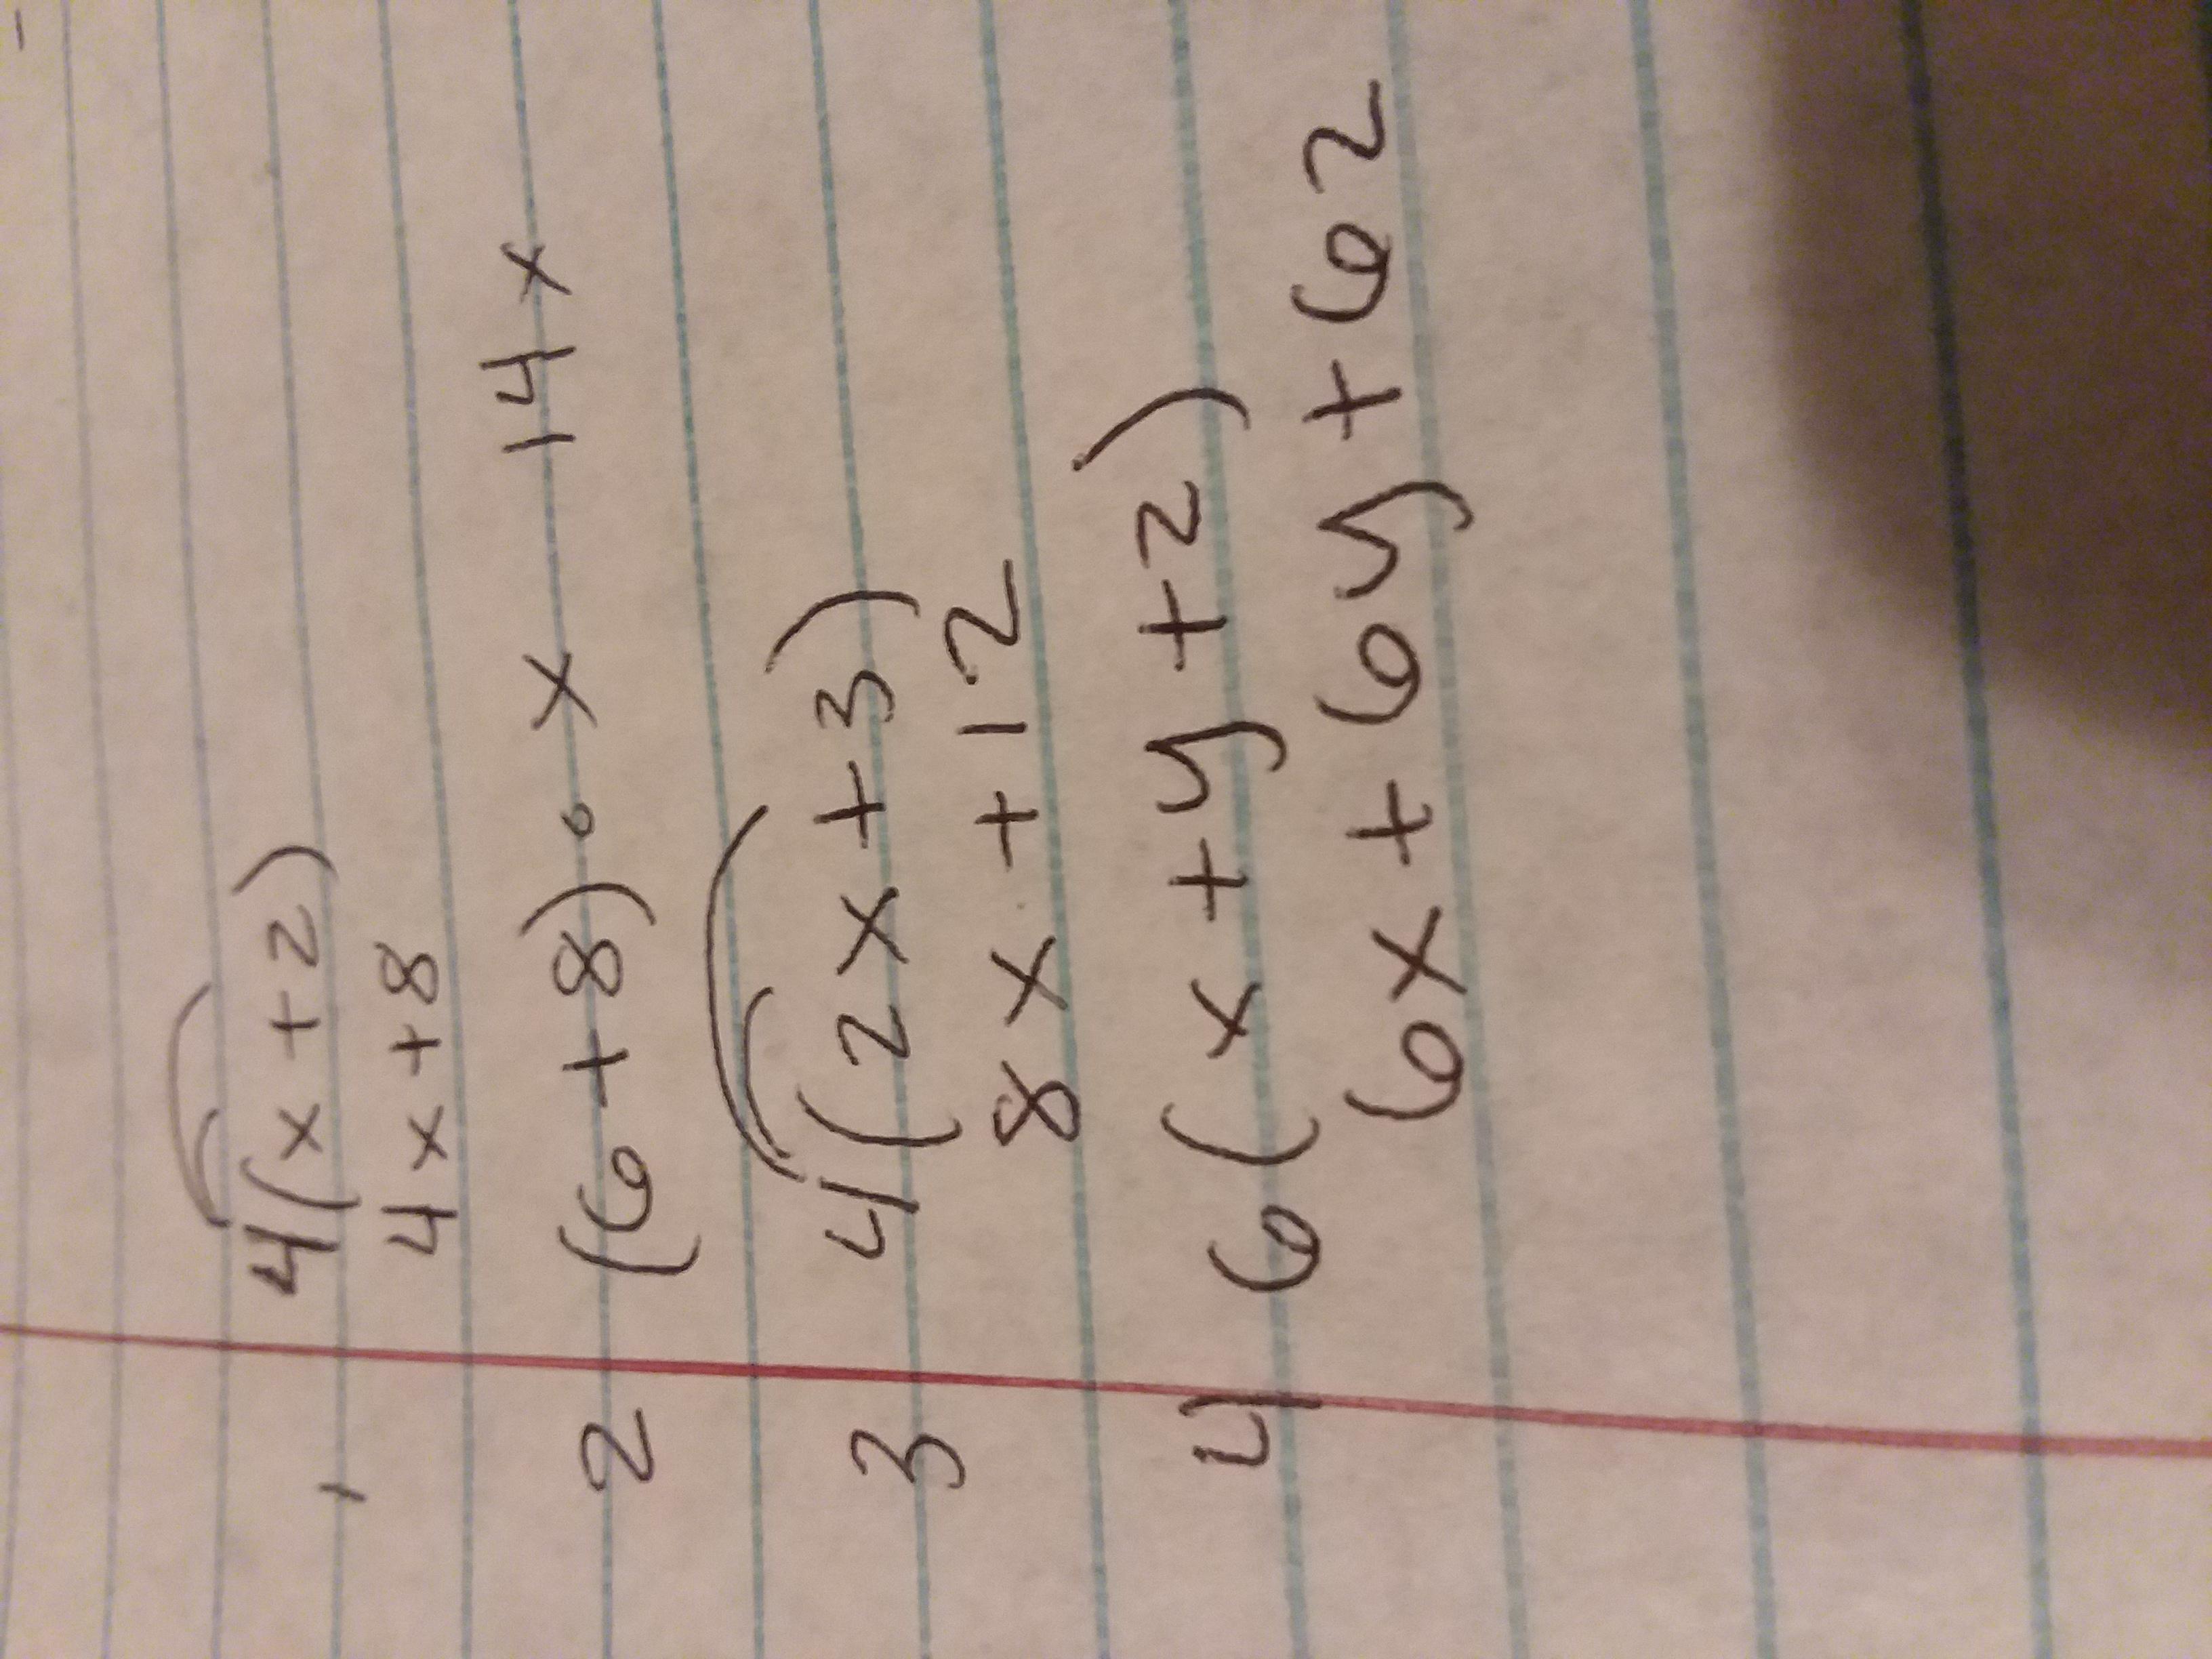 1 4(x+2)
4x+8
2 (6+8)·x 14x
3 4(2x+3)
8x+12
4 6(x+y+z)
6x+6y+6z